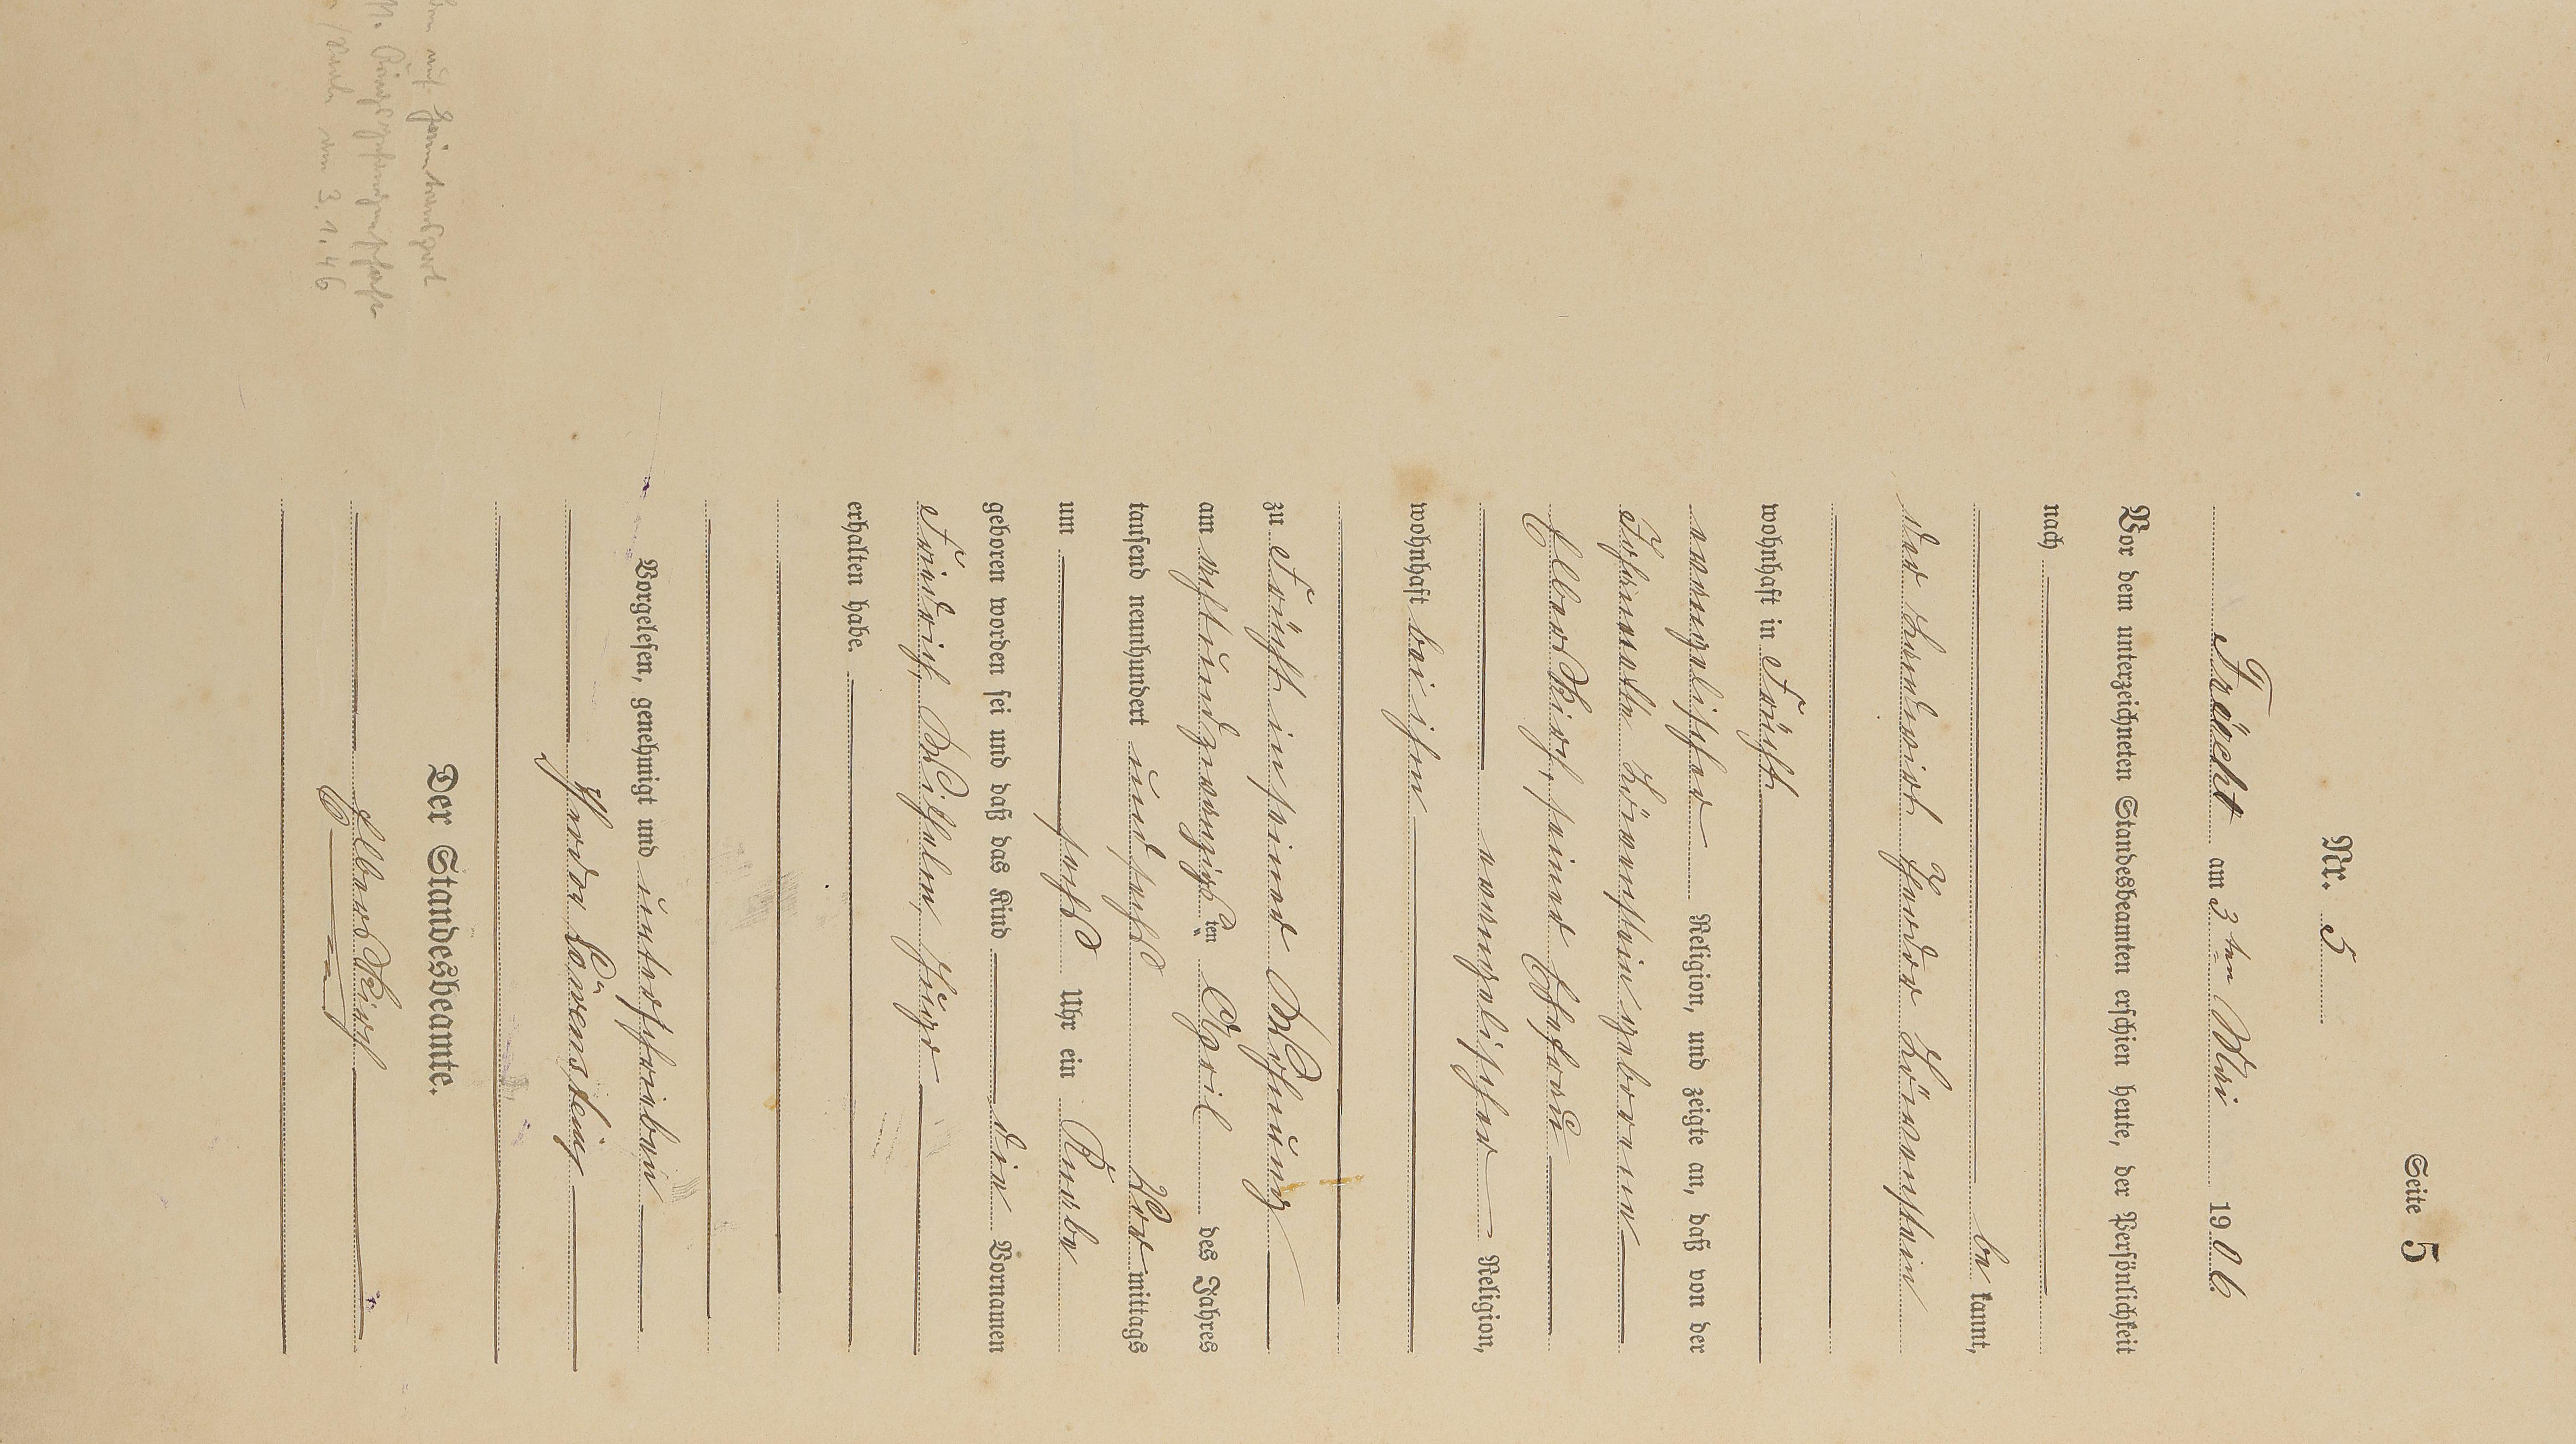 Seite 5
Nr. 5
Frücht am 3ten Mai 1906.
Vor dem unterzeichneten Standesbeamten erschien heute, der Persönlichkeit
nach
bekannt,
der Landwirt Isidor Löwenstein
wohnhaft in Frücht
evangelischer Religion, und zeigte an, daß von der
Löwenstein geborene
seiner Ehefrau
evangelischer Religion,
wohnhaft bei ihm
zu Frücht in seiner Wohnung
am achtundzwanzigsten April des Jahres
tausend neunhundert und sechs Vormittags
um sechs Uhr ein Knabe
geboren worden sei und daß das Kind die Vornamen
Friedrich, Wilhelm, Hugo
erhalten habe.
Vorgelesen, genehmigt und unterschrieben
Löwenstein
Der Standesbeamte.
auf Heimtransport
Kriegsgefangenschaft
am 3.1.46